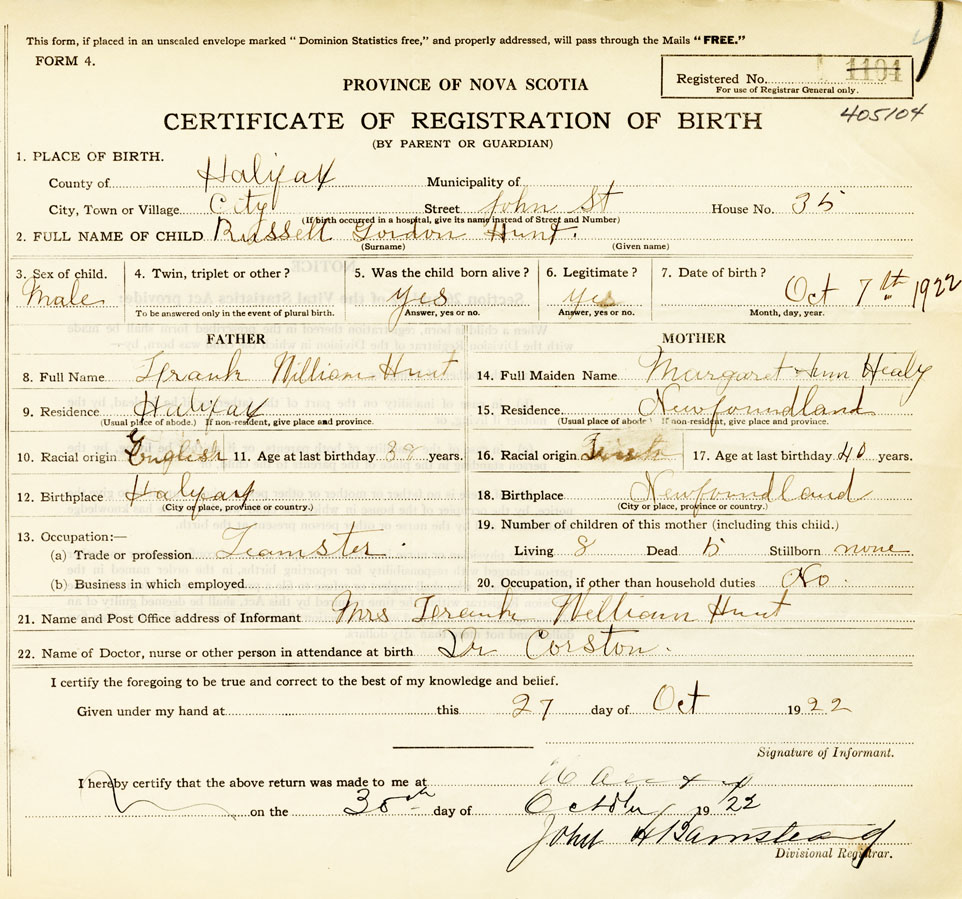 This form, if placed in an unsealed envelope marked "Dominion Statistics free," and properly addressed, will pass through the Mails "FREE."
FORM 4.
Registered No. 1104
For use of Registrar General only.
PROVINCE OF NOVA SCOTIA
405104
CERTIFICATE OF REGISTRATION OF BIRTH
(BY PARENT OR GUARDIAN)
1. PLACE OF BIRTH.
County of Halifax Municipality of
City, Town or Village City Street John St House No. 35
(If birth occurred in a hospital, give its name instead of Street and Number)
2. FULL NAME OF CHILD Russell Gordon Hunt.
(Surname) (Given name)
3. Sex of child. Male
4. Twin, triplet or other?
To be answered only in the event of plural birth.
5. Was the child born alive? yes
Answer, yes or no.
6. Legitimate? yes
Answer, yes or no.
7. Date of birth? Oct 7th 1922
Month, day, year.
FATHER
8. Full Name Frank William Hunt
9. Residence Halifax
(Usual place of abode.) If non-resident, give place and province.
10. Racial origin English 11. Age at last birthday 38 years.
12. Birthplace Halifax
(City or place, province or country.)
13. Occupation:—
(a) Trade or profession Teamster.
(b) Business in which employed
MOTHER
14. Full Maiden Name Margaret Ann Healy
15. Residence Newfoundland
(Usual place of abode) If non-resident, give place and province.
16. Racial origin Irish 17. Age at last birthday 40 years.
18. Birthplace Newfoundland
(City or place, province or country.)
19. Number of children of this mother (including this child.)
Living 8 Dead 5 Stillborn none
20. Occupation, if other than household duties No.
21. Name and Post Office address of Informant Mrs Frank William Hunt
22. Name of Doctor, nurse or other person in attendance at birth Dr Corston.
I certify the foregoing to be true and correct to the best of my knowledge and belief.
Given under my hand at this 27 day of Oct 1922
Signature of Informant.
I hereby certify that the above return was made to me at
on the 30th day of October 19/22
John H Barnstead
Divisional Registrar.